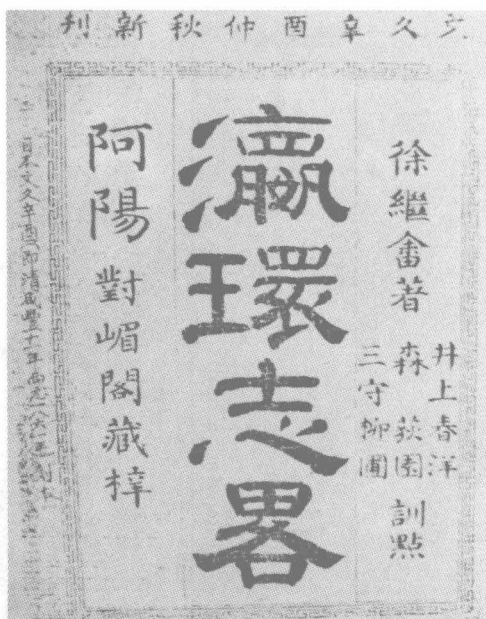 文久辛酉仲秋新刊
徐繼畬著
井上春洋
森荻園
三守柳圃
訓點
瀛環志畧
阿陽對嵋閣藏梓
日本文久辛酉即清咸豐十一年